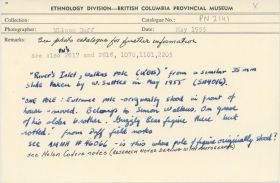 ETHNOLOGY DIVISION—BRITISH COLUMBIA PROVINCIAL MUSEUM X
Catalogue No.: PN 2141
Photographer: Wilson Duff Date: May 1955
Remarks: See photo catalogue for further information
PN's
see also 2417 and 2418, 1070, 1101, 2205
"River's Inlet, Walkus pole (#00B)" from a similar 35 mm
slide taken by W. Suttles in May 1955
"ONE POLE: Entrance pole originally stood in front of
house - moved. Belongs to Simon Walkus. On grave
of his older brother. Grizzly Bear figure there but
rotted." from Duff field notes
see AMNH #46066 - is this where pole & figure originally stood?
see Helen Codere notes